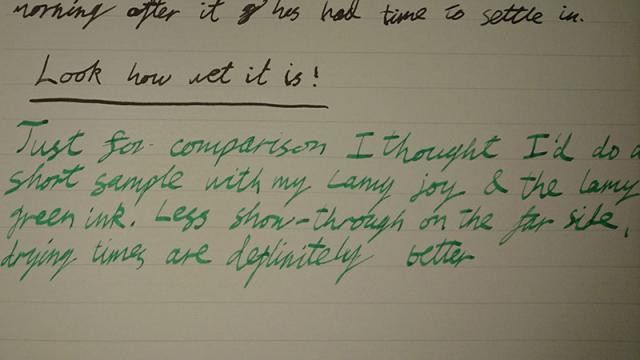 morning after it has had time to settle in.
Look how wet it is!
Just for comparison I thought I'd do a
short sample with my Lamy joy & the lamy
green ink. Less show-through on the far side,
drying times are definitely better